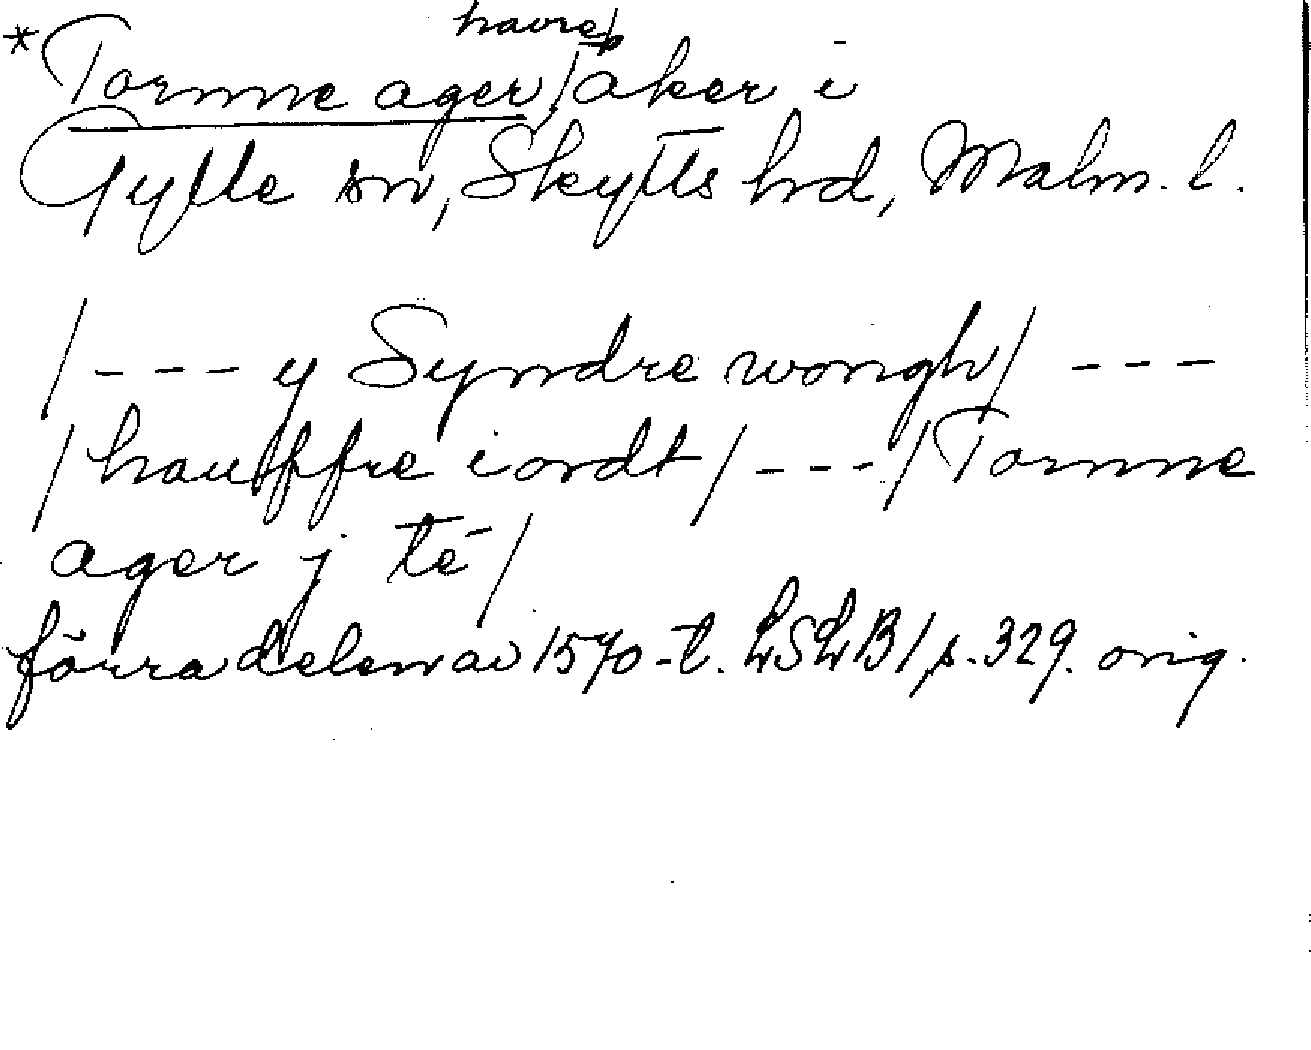 havre/
* Tornne ager, / åker i
Gylle sn, Skytts hd, Malm. l.
/ --- y Syndre wongh / ---
/ hauffre iordt / --- / Tornne
ager j té /
förra delen av 1570-t. LSLB1, s. 329. orig.